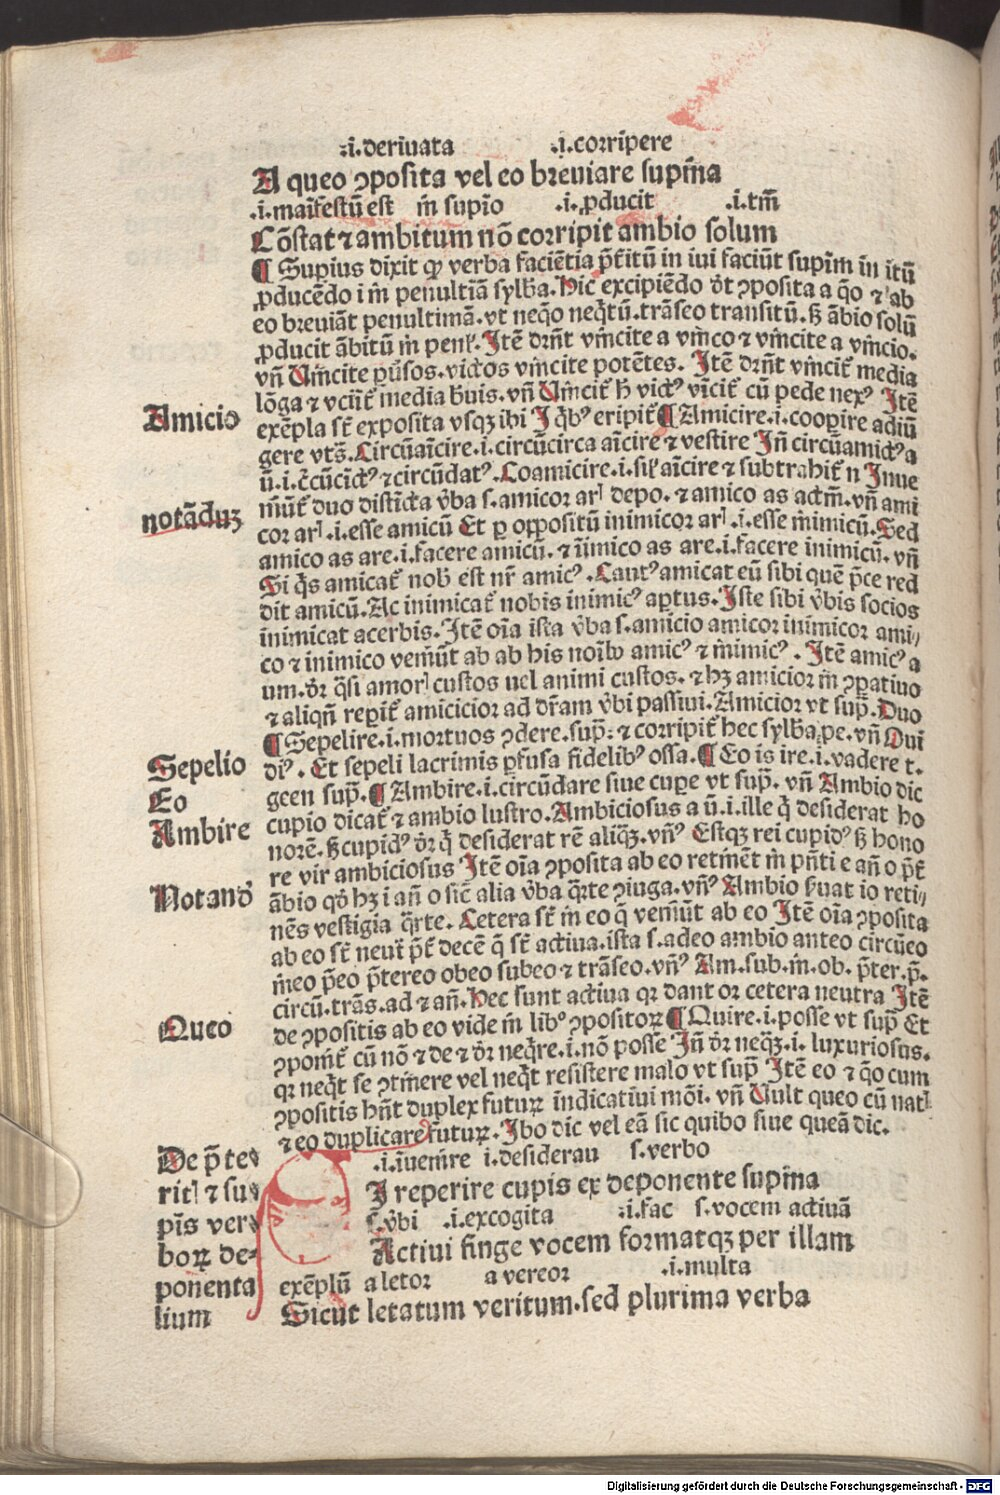 .i.deriuata .i.corripere
A queo ꝯposita vel eo breuiare supina
.i.maifestū est m̄ supīo .i.ꝓducit .i.tm̄
Cōstat ⁊ ambitum nō corripit ambio solum
¶ Supius dixit ꝙ verba faciētia p̄titū in iui faciūt supīm in itū
ꝓducēdo i m̄ penultiā syłba. Hic excipiēdo d̓t ꝯposita a q̄o ⁊ ab
eo breuiāt penultimā. vt neq̄o neq̄tū. trāseo transitū. ꝫ ābio solū
ꝓducit ābitū m̄ penł. Itē drn̄t vincite a vinco ⁊ vincite a vincio.
vn̄ Vincite ꝑuersos. victos vincite potētes. Itē drn̄t vincit᷑ media
lōga ⁊ vciit᷑ media b̓uis. vn̄ Vincit᷑ h vict⁹ vīcit᷑ cū pede nex⁹ Itē
Amicio
exēpla st᷑ exposita vsqꝫ ibi I q̄b⁹ eripit᷑ ¶ Amicire .i. cooꝑire adiū
gere vt s̄. Circūaīcire .i. circūcirca aīcire ⁊ vestire In̄ circūamict⁹ a
ū .i. c̄cūcīct⁹ ⁊ circūdat⁹. Coamicire .i. sił aīcire ⁊ subtrahit᷑ n Inue
niūt᷑ duo distīcta v̓ba s. amicor arꝭ depo. ⁊ amico as actm̄. vn̄ ami
notādū
cor arꝭ .i. esse amicū Et ꝑ oppositū inimicor arꝭ .i. esse inimicū. Sed
amico as are .i. facere amicū. ⁊ inimico as are .i. facere inimicū. vn̄
Si q̄s amicat᷑ nob̄ est nr̄ amic⁹. Caut⁹ amicat eū sibi quē p̄ce red
dit amicū. Ac inimicat᷑ nobis inimic⁹ aꝑtus. Iste sibi v̓bis socios
inimicat acerbis. Itē oīa ista v̓ba s. amicio amicor inimicor ami⸗
co ⁊ inimico veniūt ab ab his noībꝰ amic⁹ ⁊ inimic⁹. Itē amic⁹ a
um. dr̄ q̄si amorꝭ custos uel animi custos. ⁊ hꝫ amicior in ꝯparatiuo
⁊ aliqn̄ reꝑit᷑ amicicior ad dr̄am v̓bi passiui. Amicior vt sup̄. Duo
¶ Sepelire .i. mortuos ꝯdere. sup̄. ⁊ corripit᷑ hec syłba pe. vn̄ Oui
Sepelio
di⁹. Et sepeli lacrimis ꝑfusa fidelib⁹ ossa. ¶ Eo is ire .i. vadere t.
Eo
gcen sup̄. ¶ Ambire .i. circūdare siue cuꝑe vt sup̄. vn̄ Ambio dic
Ambire
cupio dicat᷑ ⁊ ambio lustro. Ambiciosus a ū .i. ille q̄ desiderat ho
norē. ꝫ cupid⁹ dr̄ q̄ desiderat rē aliq̄ꝫ. vn̄⁹ Estqꝫ rei cupid⁹ ꝫ hono
re vir ambiciosus Itē oīa ꝯposita ab eo retinēt in pn̄ti e an̄ o p̄t᷑
Notand̓
ābio qd̓ hꝫ i an̄ o sic̄ alia v̓ba q̄rte ꝯiuga. vn̄⁹ Ambio ẜuat io reti⸗
nēs vestigia q̄rte. Cetera st᷑ in eo q̄ veniūt ab eo Itē oīa ꝯposita
ab eo st᷑ neut᷑ p̄t᷑ decē q̄ st᷑ actiua. ista s. adeo ambio anteo circūeo
ineo p̄eo p̄tereo obeo subeo ⁊ trāseo. vn̄⁹ Am. sub. in. ob. p̄ter. p̄.
circū. trās. ad ⁊ an̄. Hec sunt actiua qꝛ dant or cetera neutra Itē
Queo
de ꝯpositis ab eo vide in lib⁰ ꝯpositoꝝ ¶ Quire .i. posse vt sup̄ Et
ꝯponit᷑ cū nō ⁊ de ⁊ dr̄ neq̄re .i. nō posse In̄ dr̄ neq̄ꝫ .i. luxuriosus.
qꝛ neq̄t se ꝯtinere vel neq̄t resistere malo vt sup̄ Itē eo ⁊ q̄o cum
ꝯpositis hn̄t duplex futuꝝ indicatiui mōi. vn̄ Vult queo cū natꝭ
⁊ eo duplicare futuꝝ. Ibo dic vel eā sic quibo siue queā dic.
De p̄te⸗
ritꝭ ⁊ su⸗
pīs ver⸗
boꝝ de⸗
ponenta
lium
.i.īuenire .i.desiderau s.verbo
SI reperire cupis ex deponente supina
s.v̓bi .i.excogita .i.fac s.vocem actiuā
Actiui finge vocem formatqꝫ per illam
exēplū a letor a vereor .i.multa
Sicut letatum veritum. sed plurima verba
Digitalisierung gefördert durch die Deutsche Forschungsgemeinschaft - DFG